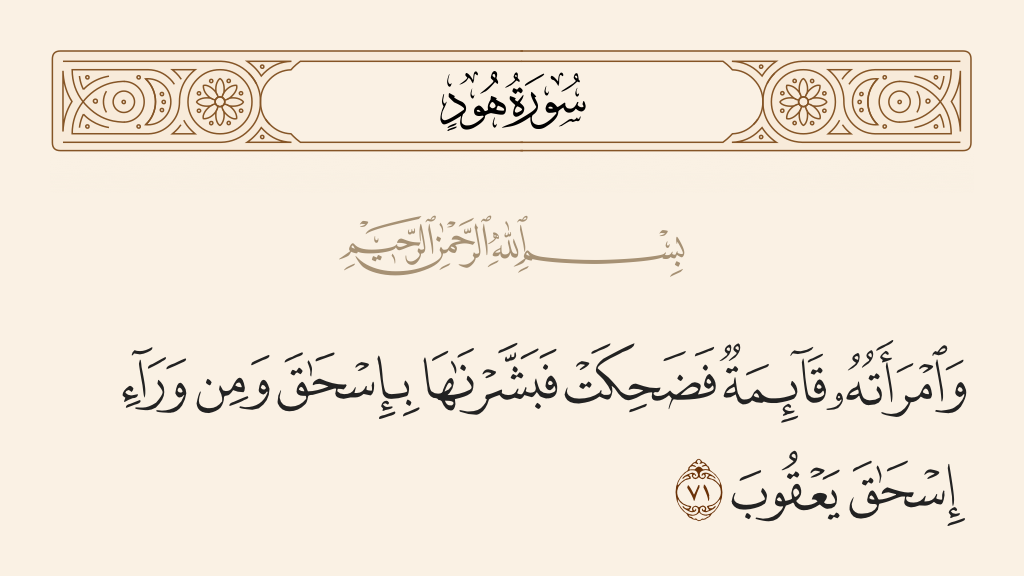 سُورَةُ هُودٍ
بِسْمِ ٱللَّهِ ٱلرَّحْمَٰنِ ٱلرَّحِيمِ
وَٱمْرَأَتُهُۥ قَآئِمَةٌ فَضَحِكَتْ فَبَشَّرْنَٰهَا بِإِسْحَٰقَ وَمِن وَرَآءِ
إِسْحَٰقَ يَعْقُوبَ ٧١